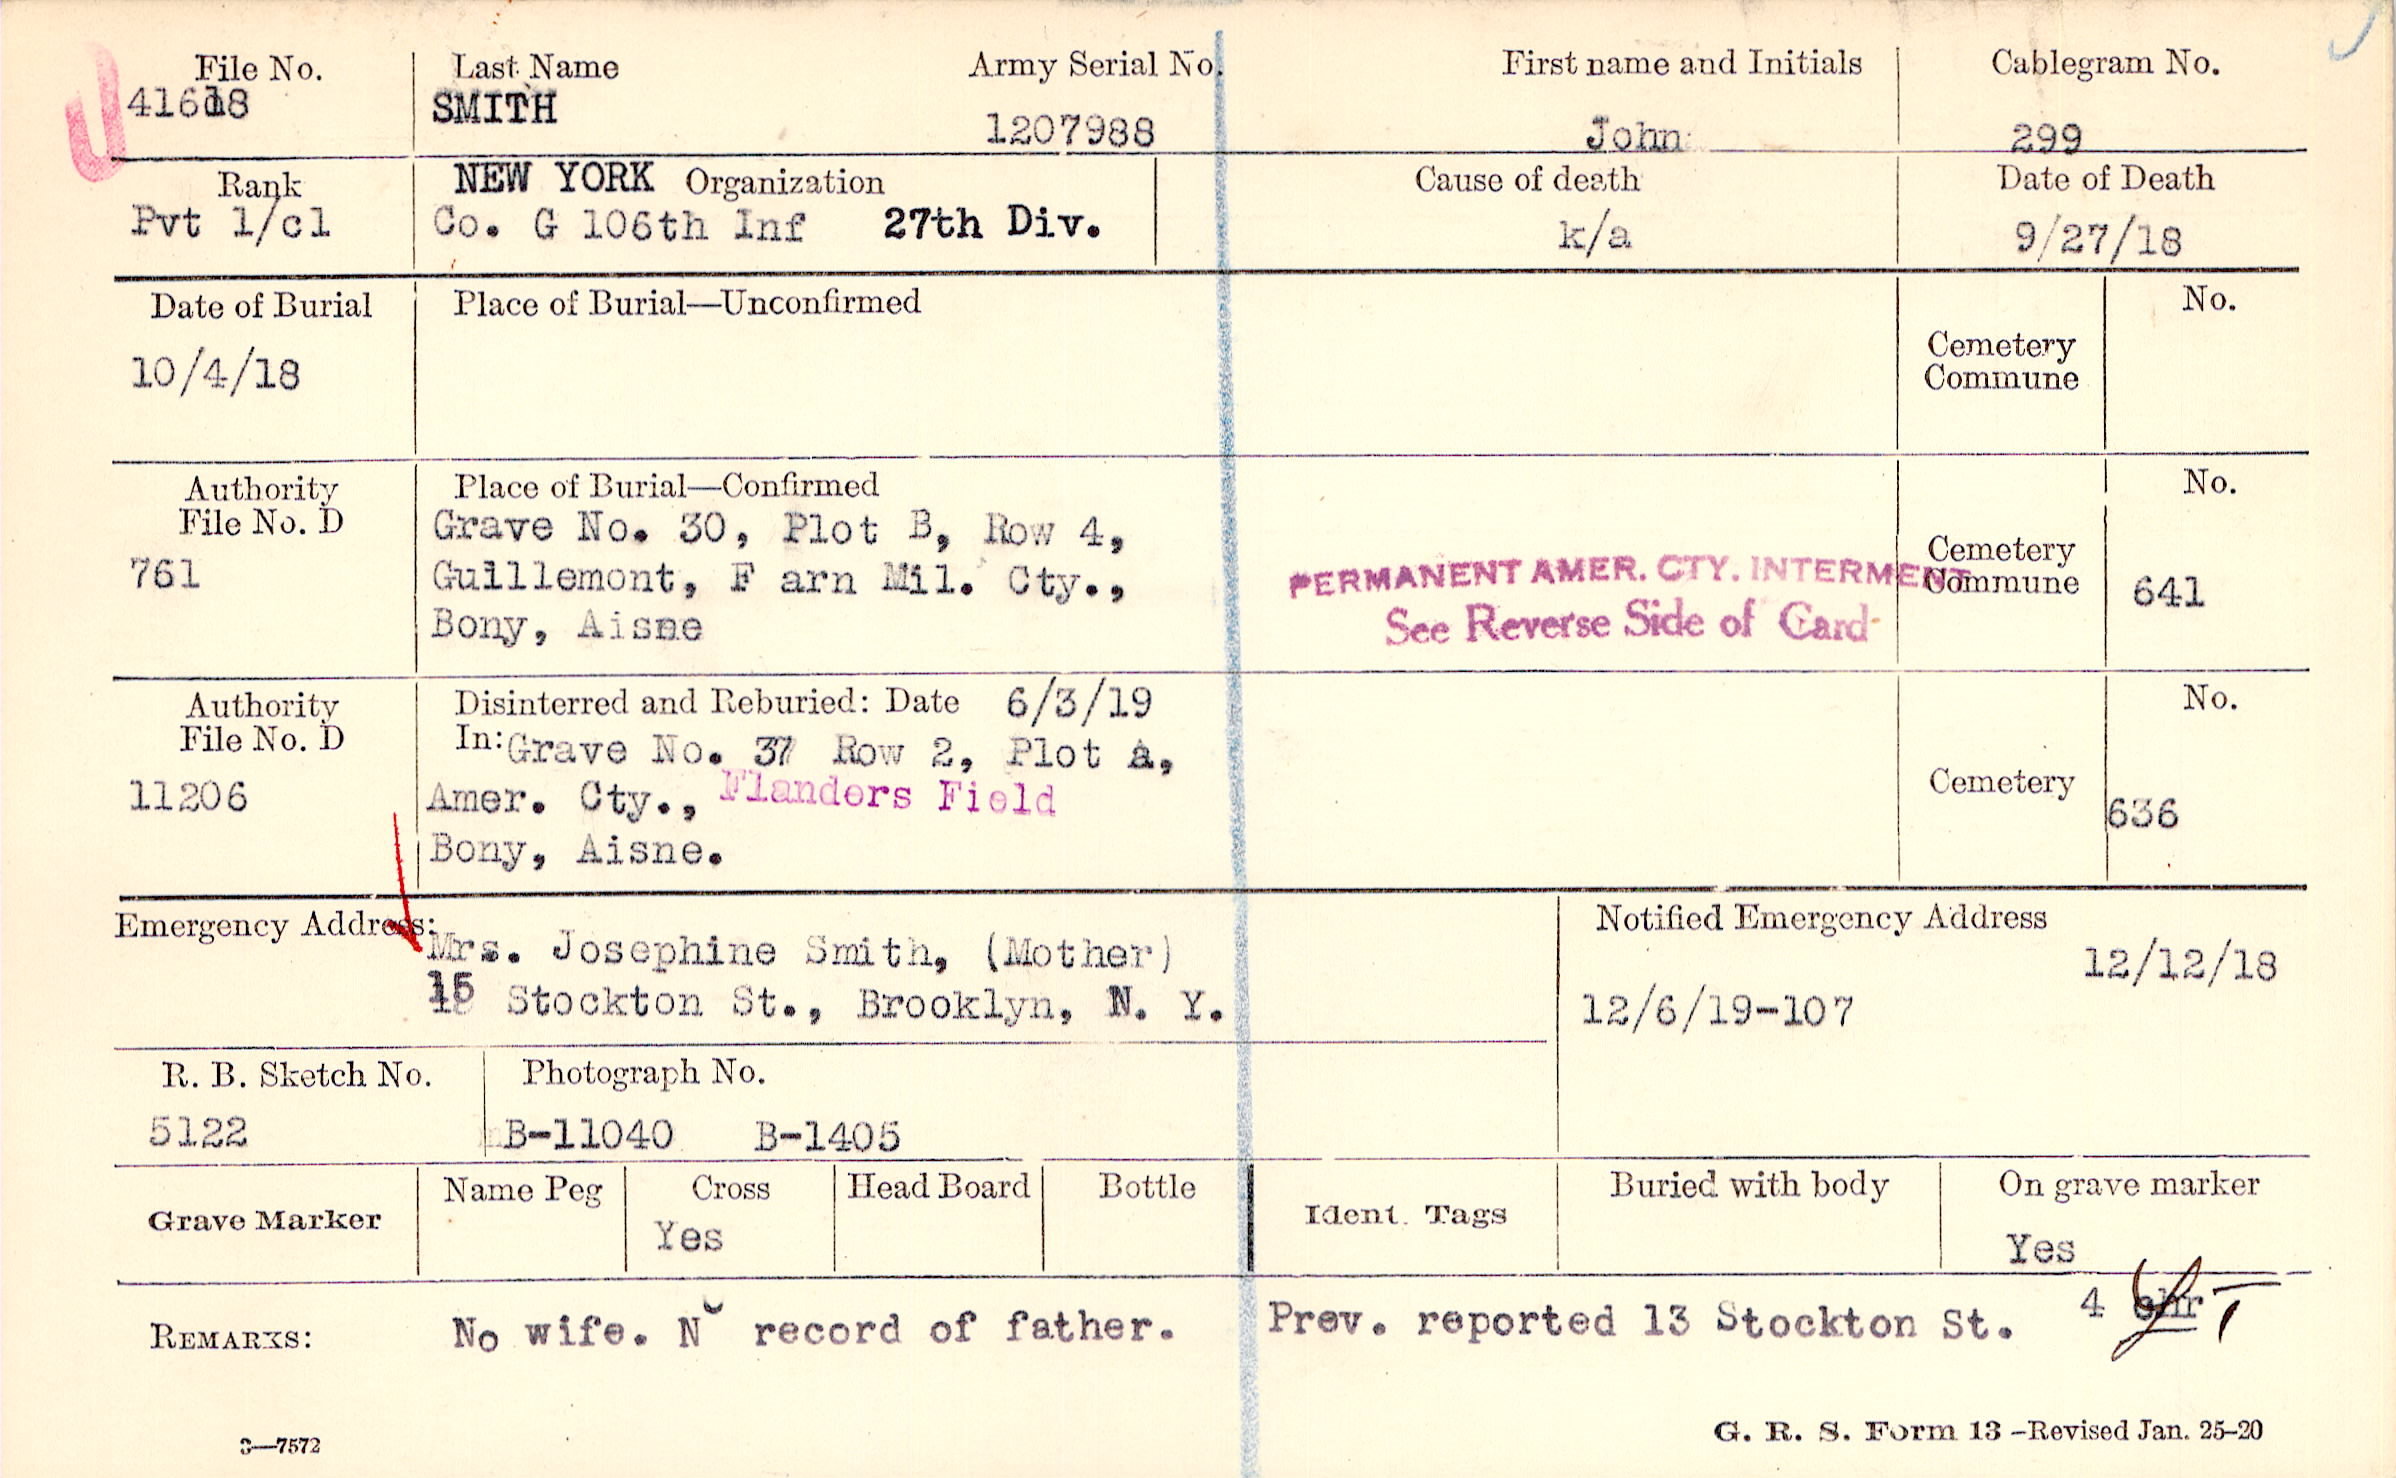 File No. Last Name Army Serial No. First name and Initials Cablegram No.
SMITH 1207988 John 299
Rank NEW YORK Organization Cause of death Date of Death
Pvt 1/cl Co. G 106th Inf 27th Div. k/a 9/27/18
Date of Burial Place of Burial—Unconfirmed No.
10/4/18 Cemetery
Commune
Authority Place of Burial—Confirmed No.
File No. D Grave No. 30, Plot B, Row 4, Cemetery
761 Guillemont, F arn Mil. Cty., PERMANENT AMER. CTY. INTERMENT Commune 641
Bony, Aisne See Reverse Side of Card
Authority Disinterred and Reburied: Date 6/3/19 No.
File No. D In: Grave No. 37 Row 2, Plot A,
11206 Amer. Cty., Flanders Field Cemetery 636
Bony, Aisne.
Emergency Address: Notified Emergency Address
Mrs. Josephine Smith, (Mother) 12/12/18
15 Stockton St., Brooklyn, N. Y. 12/6/19-107
R. B. Sketch No. Photograph No.
5122 B-11040 B-1405
Grave Marker Name Peg Cross Head Board Bottle Ident. Tags Buried with body On grave marker
Yes Yes
REMARKS: No wife. N record of father. Prev. reported 13 Stockton St. 4
3—7572 G. R. S. Form 13 -Revised Jan. 25-20